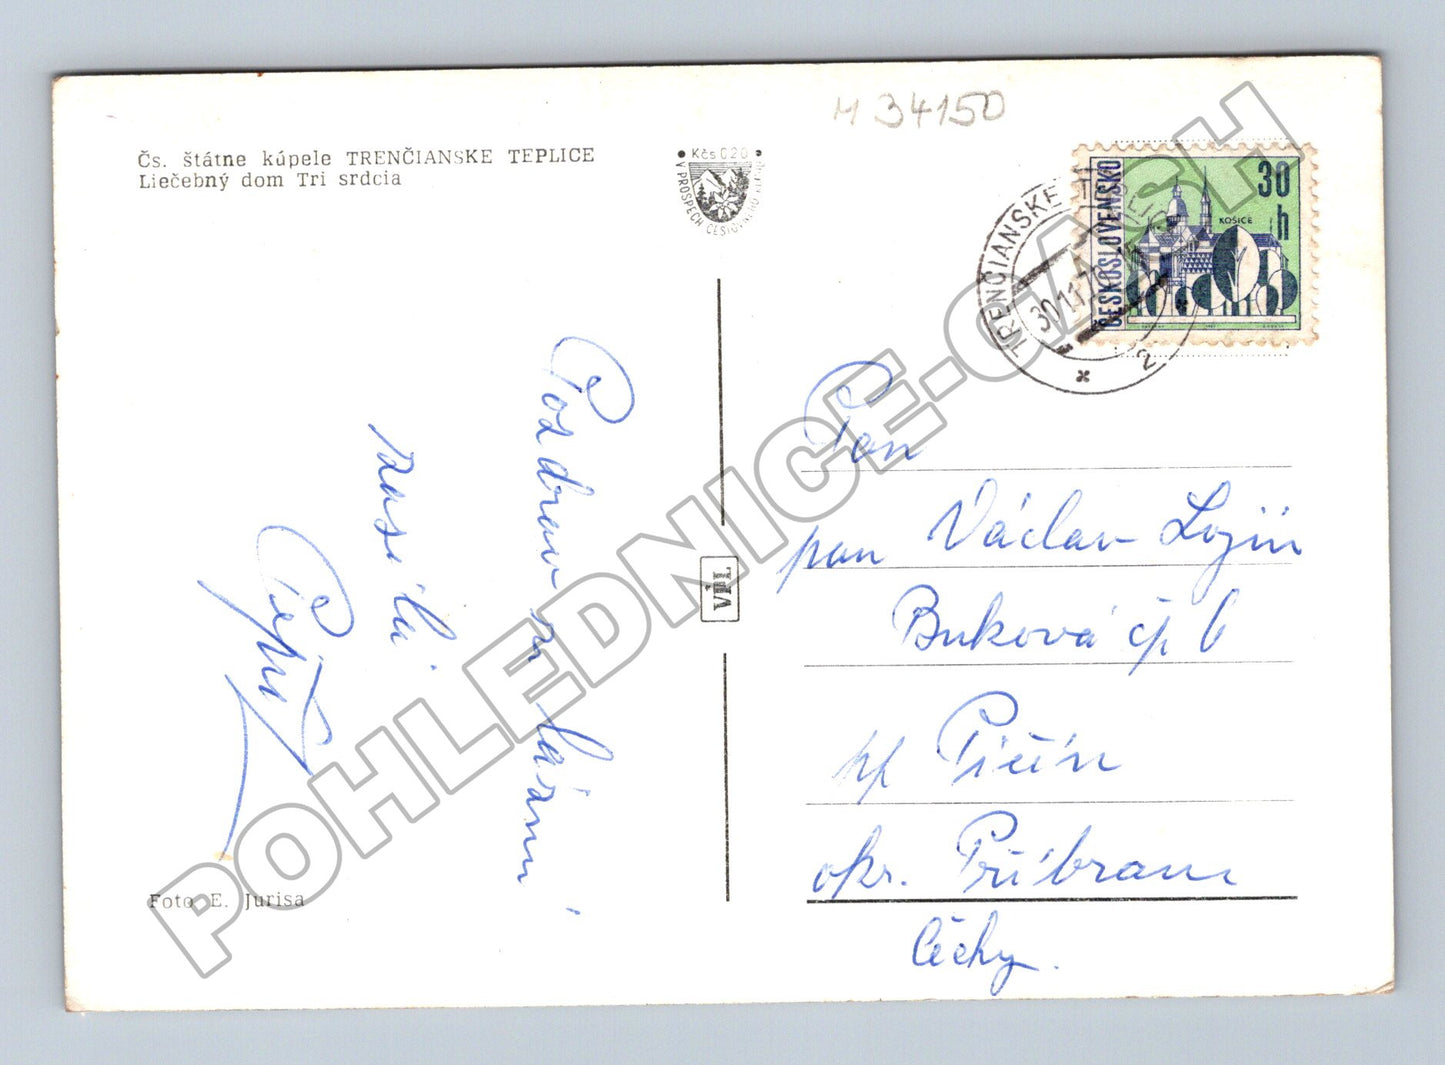 M 34150
Čs. štátne kúpele TRENČIANSKE TEPLICE
Liečebný dom Tri srdcia
• Kčs 0.20 •
V PROSPECH CESTOVNÉHO
TRENČIANSKE TEPLICE
30.11.7
2
ČESKOSLOVENSKO
30 h
KOŠICE
Pozdrav z lázní
zasílá
VPL
Pan
pan Václav Lojín
Buková čp 6
pp Pičín
okr. Příbram
Čechy.
Foto E. Jurisa
POHLEDNICE-CASH